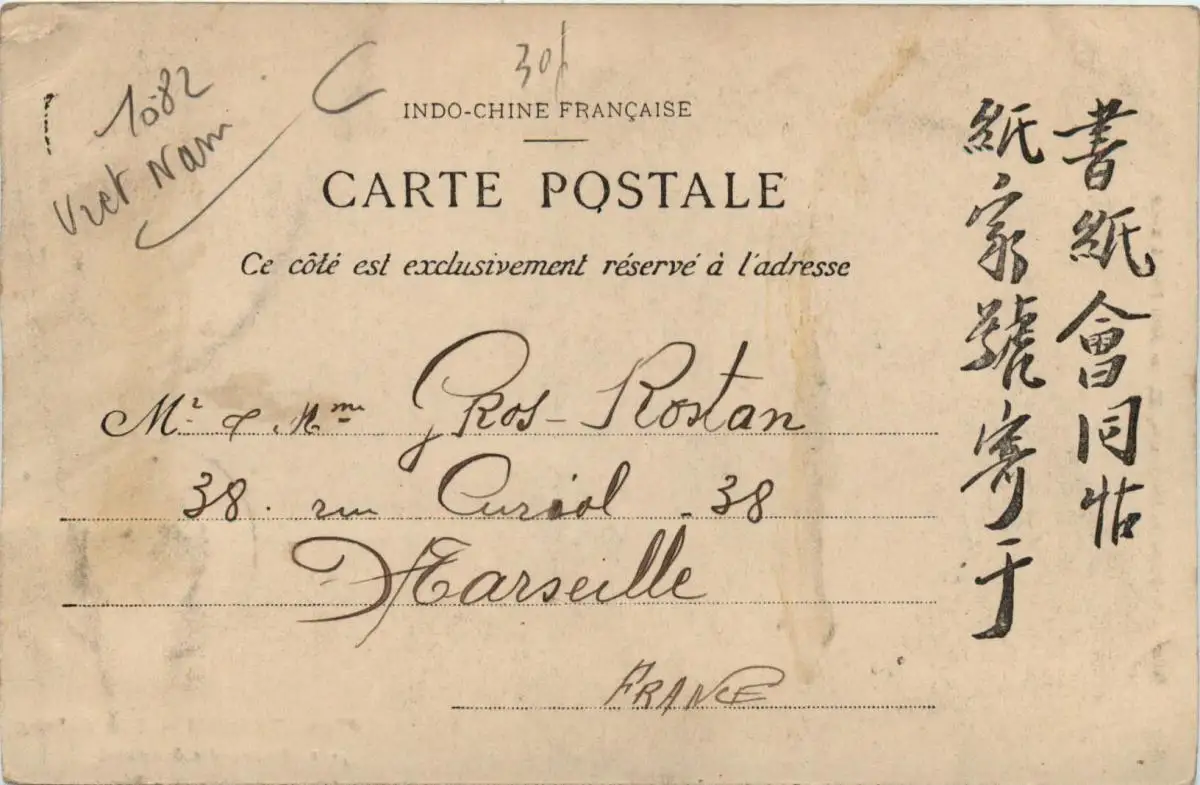 30f
INDO-CHINE FRANÇAISE
CARTE POSTALE
Ce côté est exclusivement réservé à l'adresse
1082
Viet Nam
Mr & Mme Gros-Rostan
38. rue Curiol. 38
Marseille
FRANCE
書紙會同帖
紙家號寄于